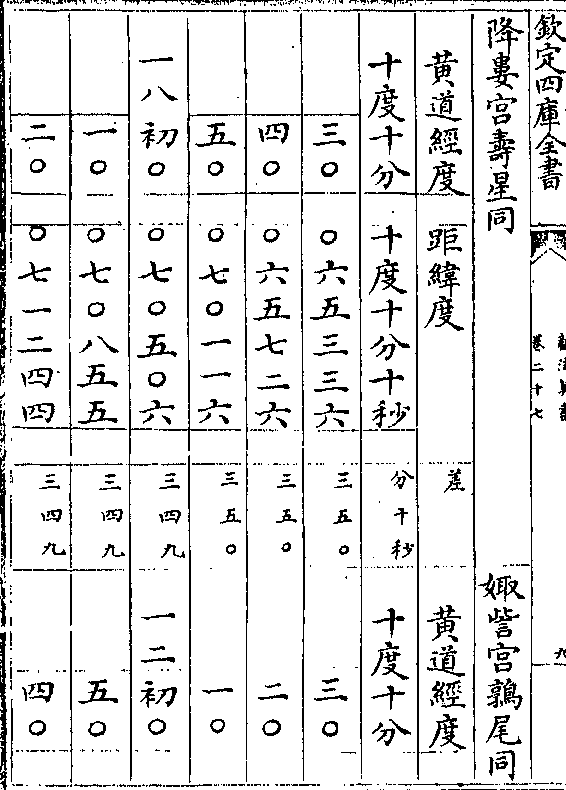 欽定四庫全書
卷二十七
降婁宮壽星同 娵訾宮鶉尾同
黃道經度 距緯度 差 黃道經度
十度十分 十度十分十秒 分十秒 十度十分
三〇 〇六五三三六 三五〇 三〇
四〇 〇六五七二六 三五〇 二〇
五〇 〇七〇一一六 三五〇 一〇
一八初〇 〇七〇五〇六 三四九 一二初〇
一〇 〇七〇八五五 三四九 五〇
二〇 〇七一二四四 三四九 四〇